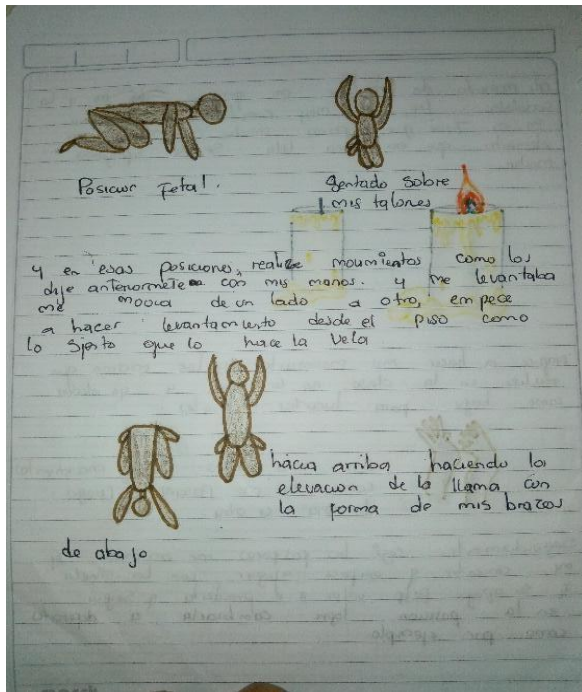 Posicion Fetal.
Sentado Sobre
mis talones
y en esas posiciones, realize moumientos como los
dije anteriormete con mis manos. y me levantaba
me mooca de un lado a otro, empece
a hacer levantamiento desde el piso como
lo siento que lo hace la Vela
hacia arriba haciendo la
elevacion de la llama con
la forma de mis brazos
de abajo